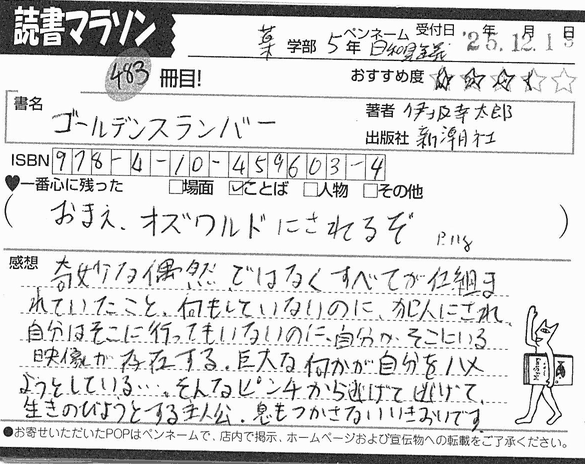 読書マラソン
薬 学部 5年 ペンネーム 日和見主義 受付日 '25年12月1日
483冊目!
おすすめ度 ☆☆☆☆☆
書名 ゴールデンスランバー
著者 伊坂幸太郎
出版社 新潮社
ISBN 978-4-10-459603-4
♥一番心に残った □場面 ☑ことば □人物 □その他
(おまえ、オズワルドにされるぞ P.118)
感想 奇妙な偶然ではなくすべてが仕組ま
れていたこと、何もしていないのに、犯人にされ、
自分はそこに行ってもいないのに、自分がそこにいる
映像が存在する。巨大な何かが自分をハメ
ようとしている…。そんなピンチから逃げて逃げて、
生きのびようとする主人公。息もつかさないいきおいです。
●お寄せいただいたPOPはペンネームで、店内で掲示、ホームページおよび宣伝物への転載をご了承ください。